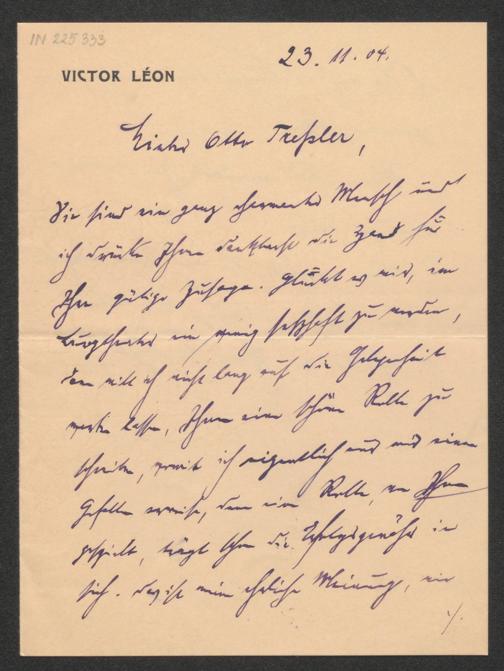 IN 225 333
23. 11. 04.
VICTOR LÉON
Lieber Otto Treßler,
Sie sind ein ganz charmanter Mensch und
ich drücke Ihnen dankbarst die Hand für
Ihre gütige Zusage. Glückt es mir, im
Burgtheater ein wenig seßhaft zu werden,
dann will ich nicht lang auf die Gelegenheit
warten lassen, Ihnen eine schöne Rolle zu
schreiben, womit ich eigentlich nur mir einen
Gefallen erweise, denn eine Rolle, von Ihnen
gespielt, trägt schon die Erfolgsgewähr in
sich. Das ist meine ehrliche Meinung, wie
./.